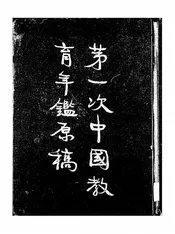 第一次中國教
育年鑑原稿